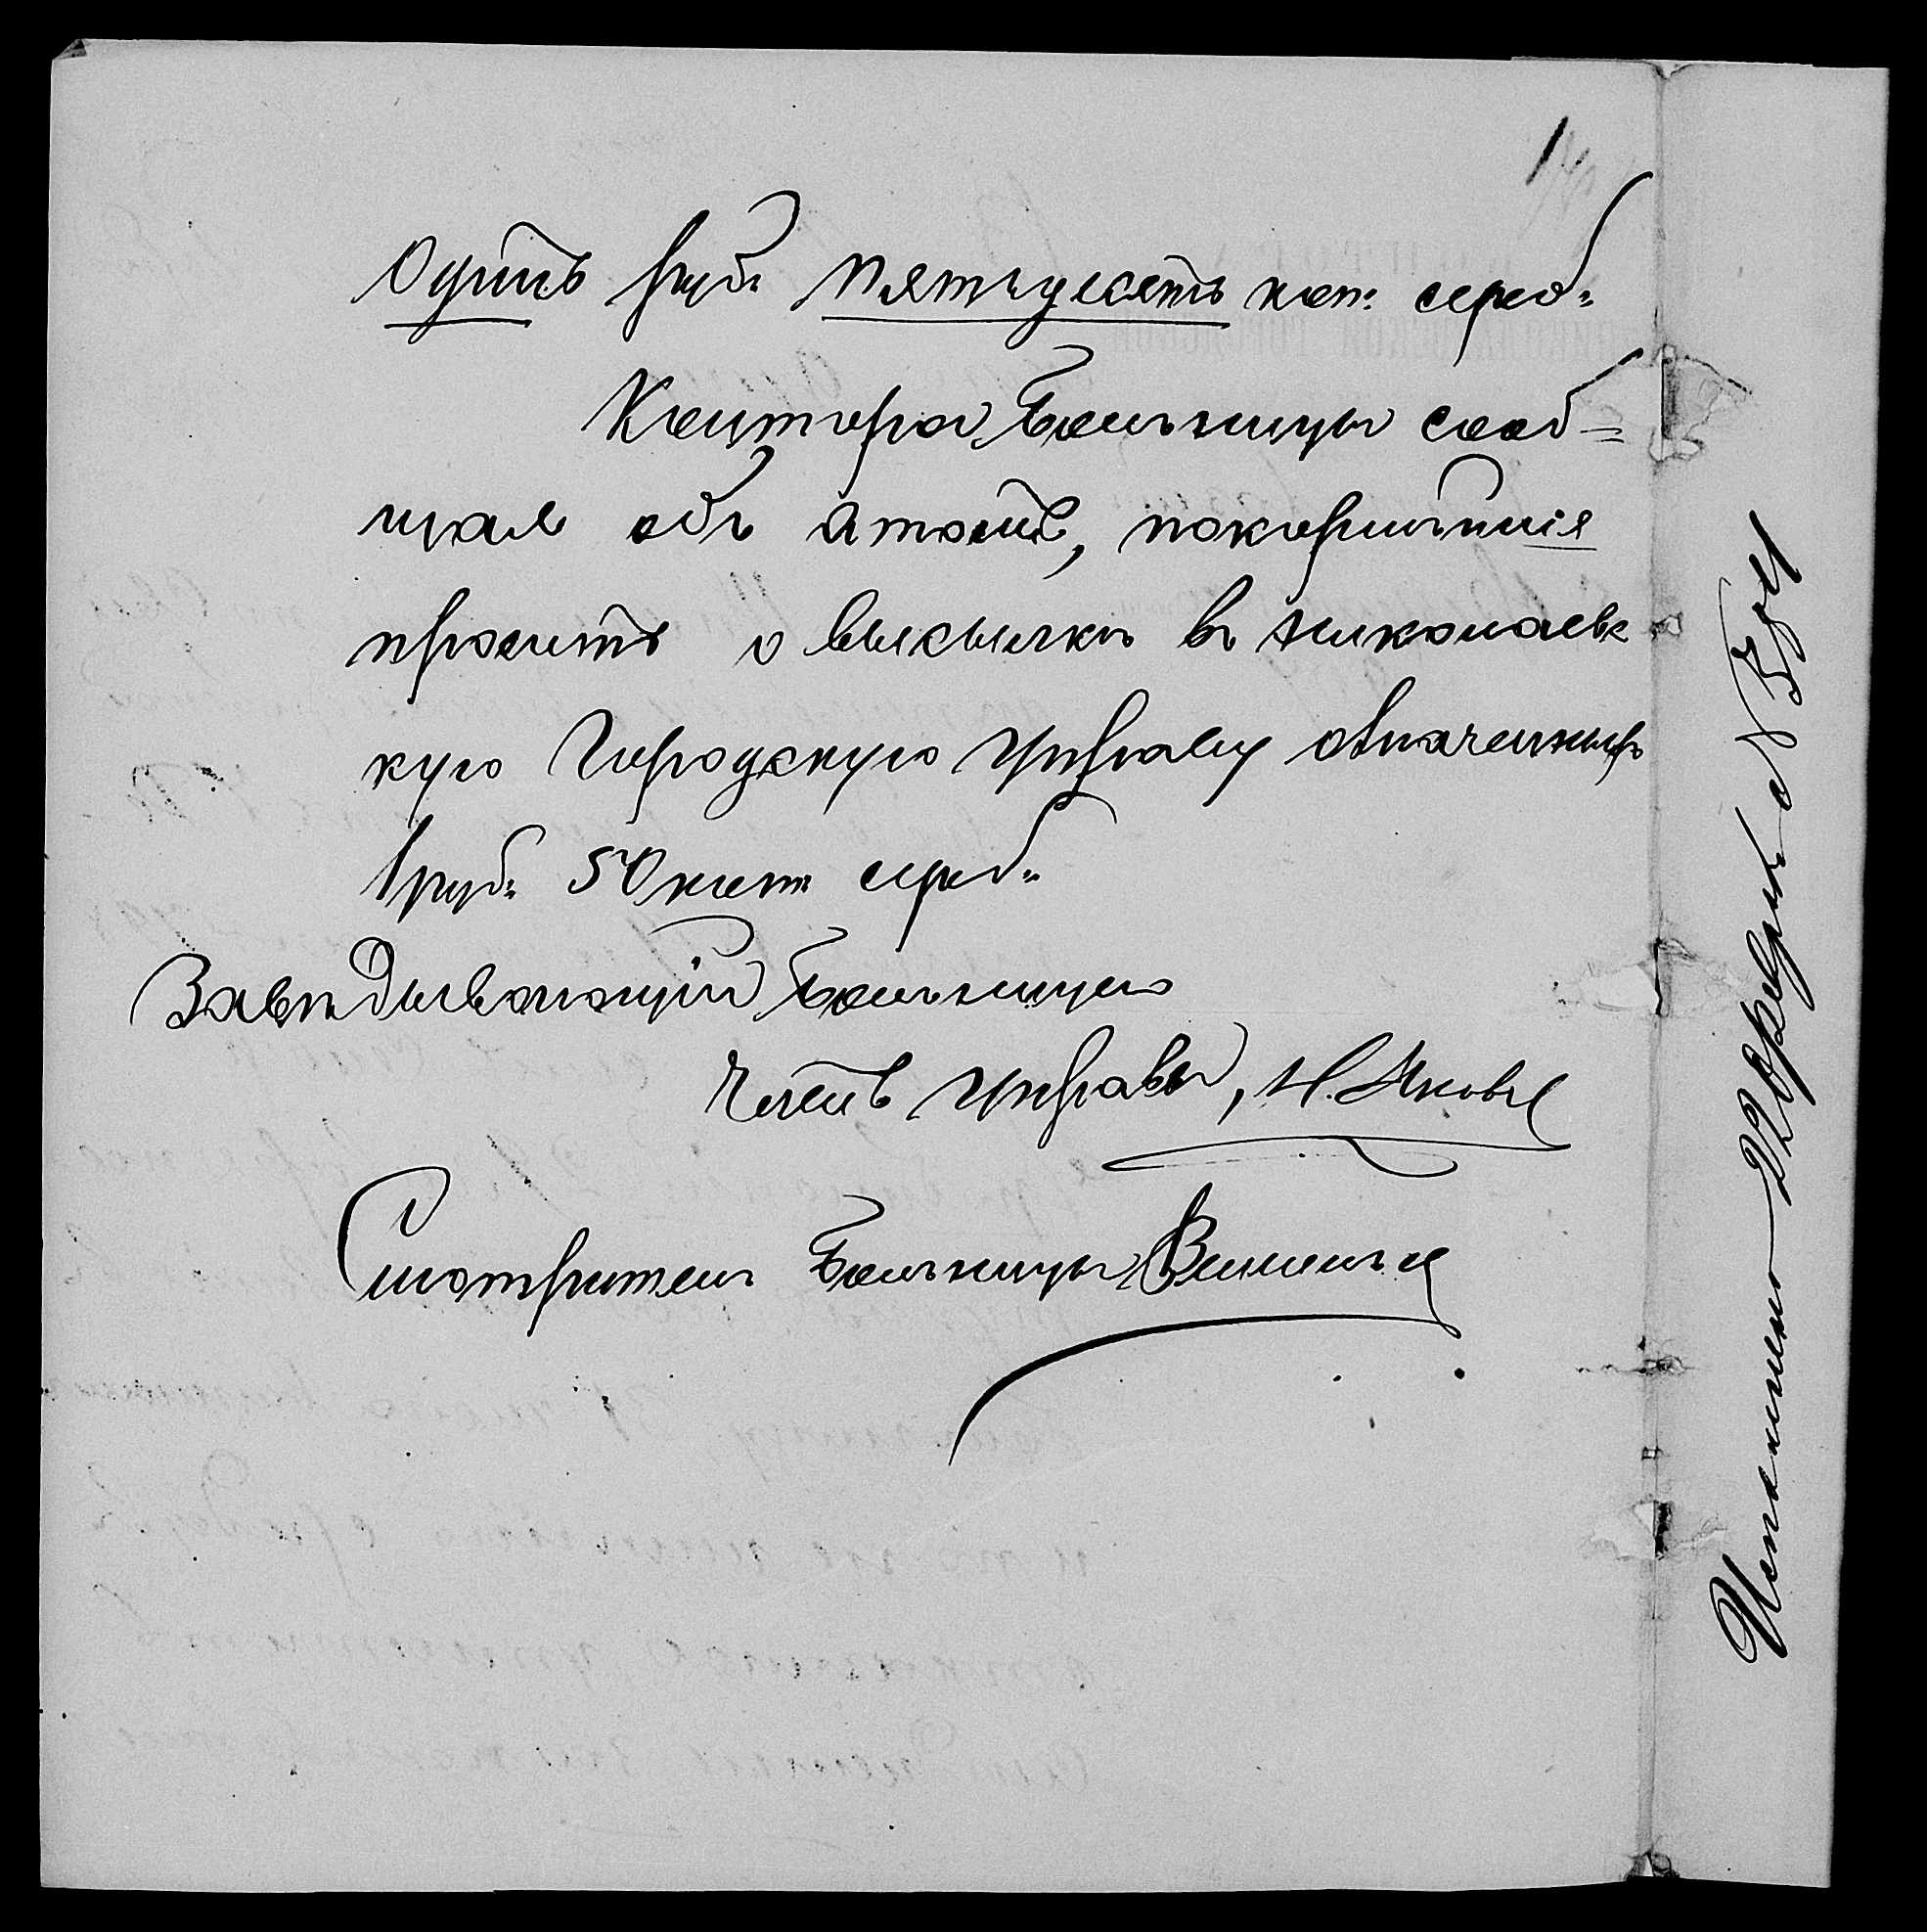 Одинъ руб: Пятьдесять коп: сереб:
Контора Больницы сооб=
щая объ атомъ, покорнѣйшія
просить о высылкѣ въ Николаевс
кую Городскую Управу означенныхъ
1 руб: 50 коп: сереб:
Завѣдывающій Больницею
Членъ Управы, Н. Яковл
Смотритель Больницы
Исполнено 22 февраля №